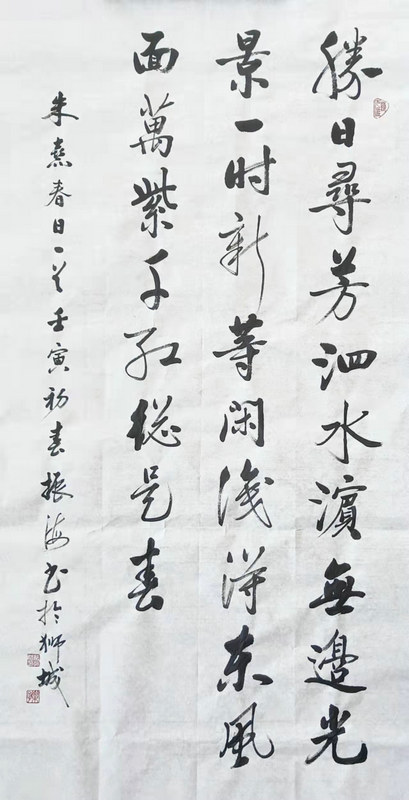 勝日尋芳泗水濱無邊光
景一时新等閑淺得东風
面萬紫千红總是春
朱熹春日一首壬寅初春振海书於狮城